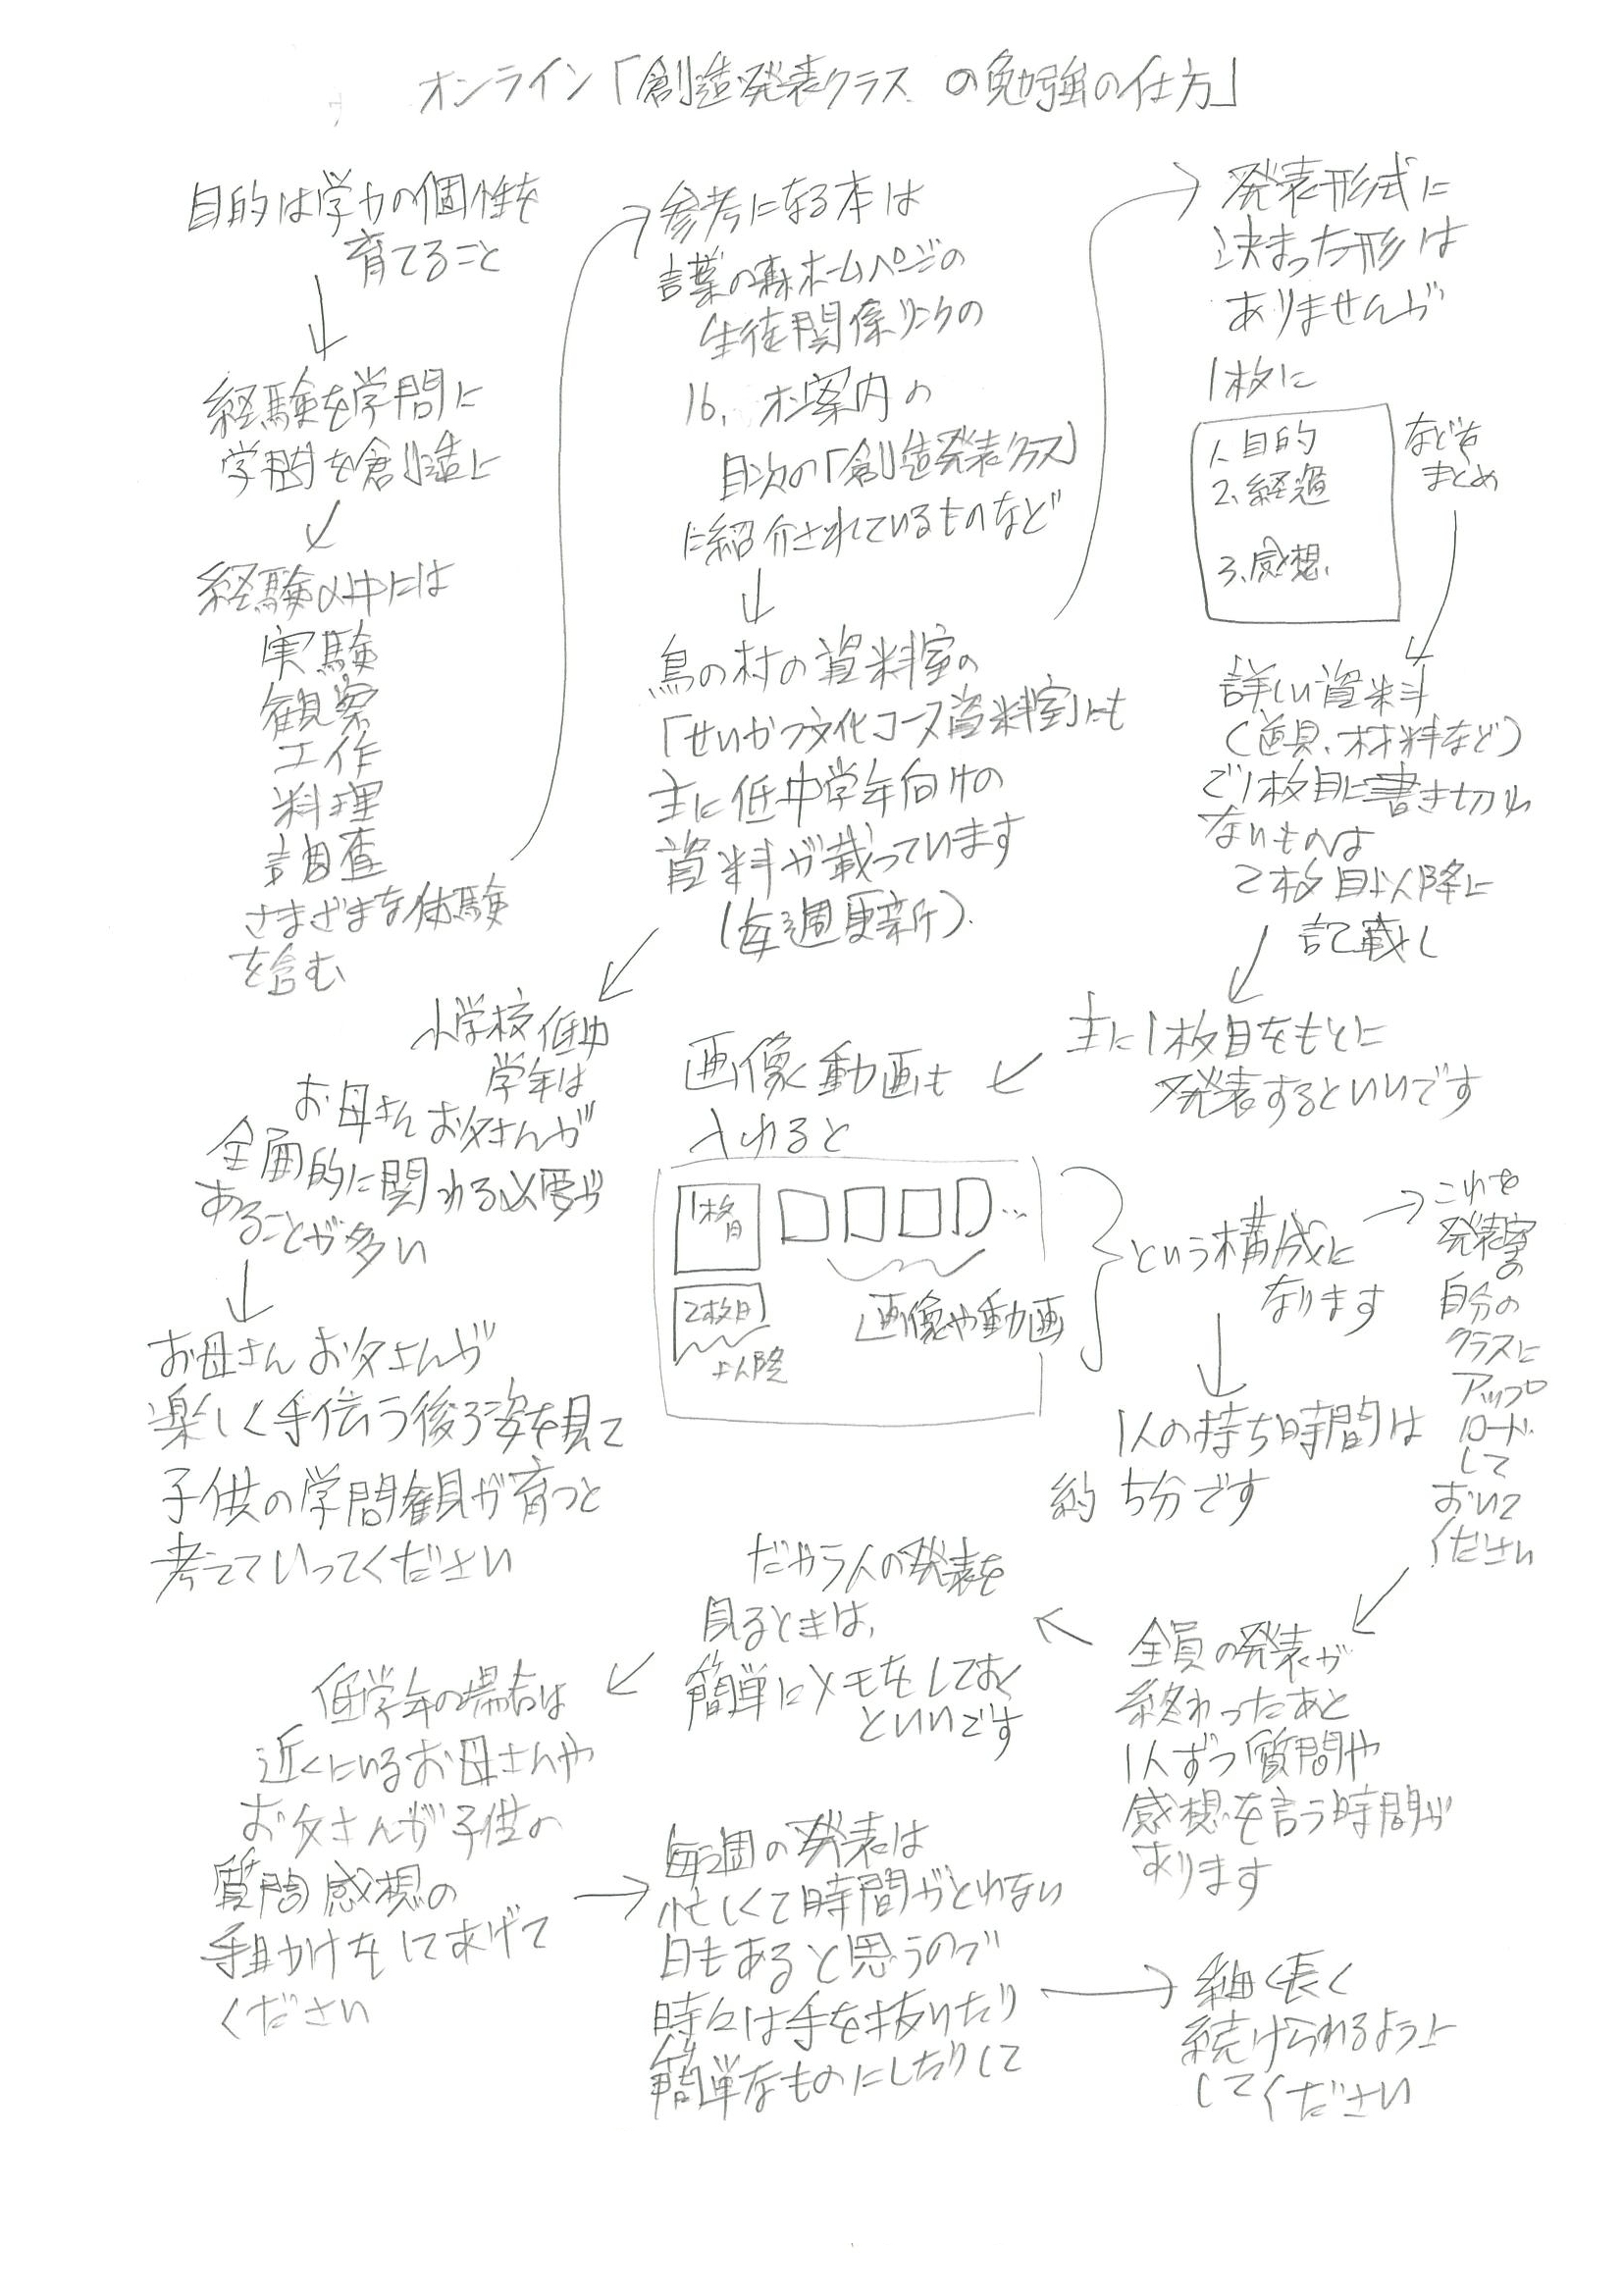 オンライン「創造発表クラスの勉強の仕方」
目的は学力の個性を
育てること
経験を学問に
学問を創造に
経験の中には
実験
観察
工作
料理
調査
さまざまな体験
を含む
参考になる本は
言葉の森ホームページの
生徒関係リンクの
16. オン案内の
目次の「創造発表クラス」
に紹介されているものなど
鳥の村の資料室の
「せいかつ文化コース資料室」にも
主に低中学年向けの
資料が載っています
(毎週更新).
小学校低中
学年は
お母さんお父さんが
全面的に関わる必要が
あることが多い
お母さんお父さんが
楽しく手伝う後ろ姿を見て
子供の学問観が育つと
考えていってください
発表形式に
決まった形は
ありませんが
1枚に
1.目的
2.経過
3.感想.
などを
まとめ
詳しい資料
(道具、材料など)
で1枚目に書き切れ
ないものは
2枚目以降に
記載し
主に1枚目をもとに
発表するといいです
画像動画も
入れると
1枚
目
2枚目
以降
画像や動画
という構成に
なります
これを
発表室
の
自分の
クラスに
アップロ
ード
して
おいて
ください
1人の持ち時間は
約5分です
全員の発表が
終わったあと
1人ずつ質問や
感想を言う時間が
あります
だから人の発表を
見るときは,
簡単にメモをしておく
といいです
低学年の場合は
近くにいるお母さんや
お父さんが子供の
質問感想の
手助けをしてあげて
ください
毎週の発表は
忙しくて時間がとれない
日もあると思うので
時々は手を抜いたり
簡単なものにしたりして
細く長く
続けられるように
してください